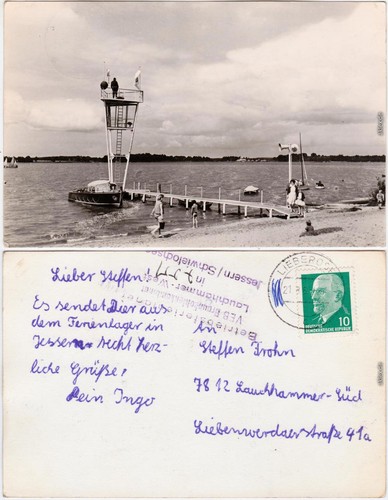 Lieber Steffen!
Es sendet Dier aus
dem Ferienlager in
Jessern recht herz-
liche Grüße!
Dein Ingo
Betriebsferienlager
VEB Braunkohlenwerk
Lauchhammer - West
in
Jessern/Schwielochsee
LIEBEROSE
10
DEUTSCHE
DEMOKRATISCHE REPUBLIK
An
Steffen Frohn
7812 Lauchhammer-Süd
Liebenwerdaerstraße 41a